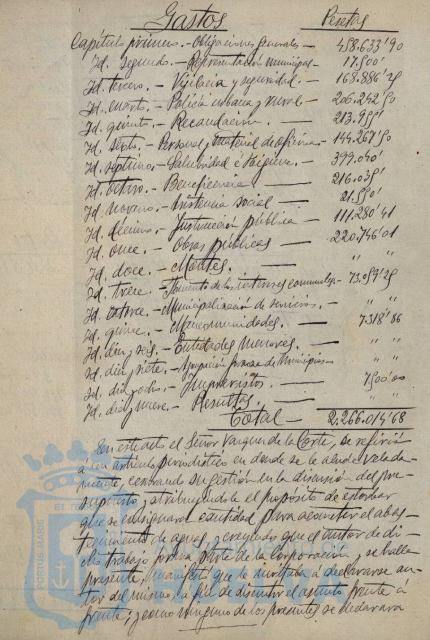 Gastos Pesetas
Capítulo primero.- Obligaciones generales - 458.633'90
Id. segundo.- Representación municipal - 17.500'
Id. tercero.- Vigilancia y seguridad. - 168.886'25
Id. cuarto.- Policía urbana y rural - 206.242'50
Id. quinto.- Recaudación. - 213.951'
Id. sexto.- Personal y material de oficinas - 144.267'50
Id. séptimo.- Salubridad é Higiene. - 399.040'
Id. octavo.- Beneficencia - 216.035'
Id. noveno.- Asistencia social - 21.550'
Id. décimo.- Instrucción pública - 111.280'41
Id. once.- Obras públicas - 220.746'01
Id. doce.- Montes. - " "
Id. trece.- Fomento de los intereses comunales - 73.059'25
Id. catorce.- Municipalización de servicios. - " "
Id. quince.- Mancomunidades. - 7.318'86
Id. diez y seis.- Entidades Menores. - " "
Id. diez y siete.- Agrupación forzosa de Municipios " "
Id. diez y ocho.- Imprevistos. - 7500'00
Id. diez y nueve.- Resultas. - " "
Total - 2.266.014'68
En este acto el Señor Vazquez de la Corte, se refirió
á un artículo periodístico en donde se le alude velada-
mente, censurando su gestión en la discusión del pre-
supuesto, atribuyéndole el propósito de estorbar
que se consignara cantidad para acometer el abas-
tecimiento de aguas, y creyendo que el autor de di-
cho trabajo forma parte de la Corporación y se halla
presente, manifestó que le invitaba á declararse au-
tor del mismo, á fin de discutir el asunto frente á
frente; y como ninguno de los presentes se declarara